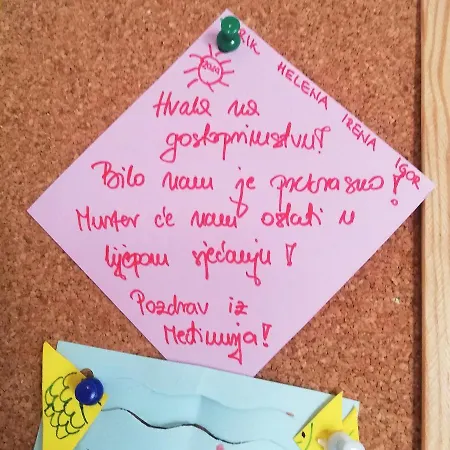 HELENA IRENA IGOR
2020
Hvala na
gostoprimstvu!
Bilo nam je prekrasno!
Murter će nam ostati u
lijepom sjećanju!
Pozdrav iz
Međimurja!